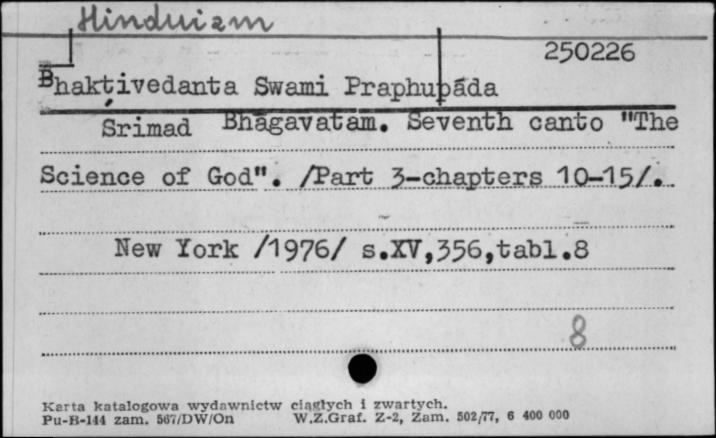 Hinduizm
250226
Bhaktivedanta Swami Praphupāda
Śrimad Bhāgavatam. Seventh canto "The
Science of God". /Part 3-chapters 10-15/.
New York /1976/ s.XV,356,tabl.8
8
Karta katalogowa wydawnictw ciągłych i zwartych.
Pu-B-144 zam. 567/DW/On W.Z.Graf. Z-2, Zam. 502/77, 6 400 000